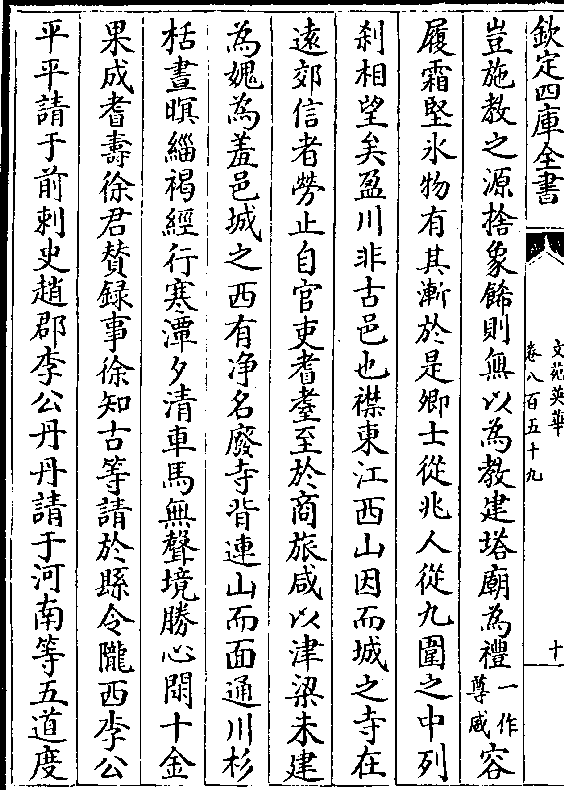 欽定四庫全書
文苑英華
卷八百五十九
十
豈施教之源捨象飾則無以為教建塔廟為禮一作尊咸容
履霜堅氷物有其漸於是卿士從兆人從九圍之中列
刹相望矣盈川非古邑也襟東江西山因而城之寺在
遠郊信者勞止自官吏耆耋至於商旅咸以津梁未建
為媿為羞邑城之西有净名廢寺背連山而面通川杉
栝晝暝緇褐經行寒潭夕清車馬無聲境勝心閑十金
果成耆壽徐君贊録事徐知古等請於縣令隴西李公
平平請于前刺史趙郡李公丹丹請于河南等五道度